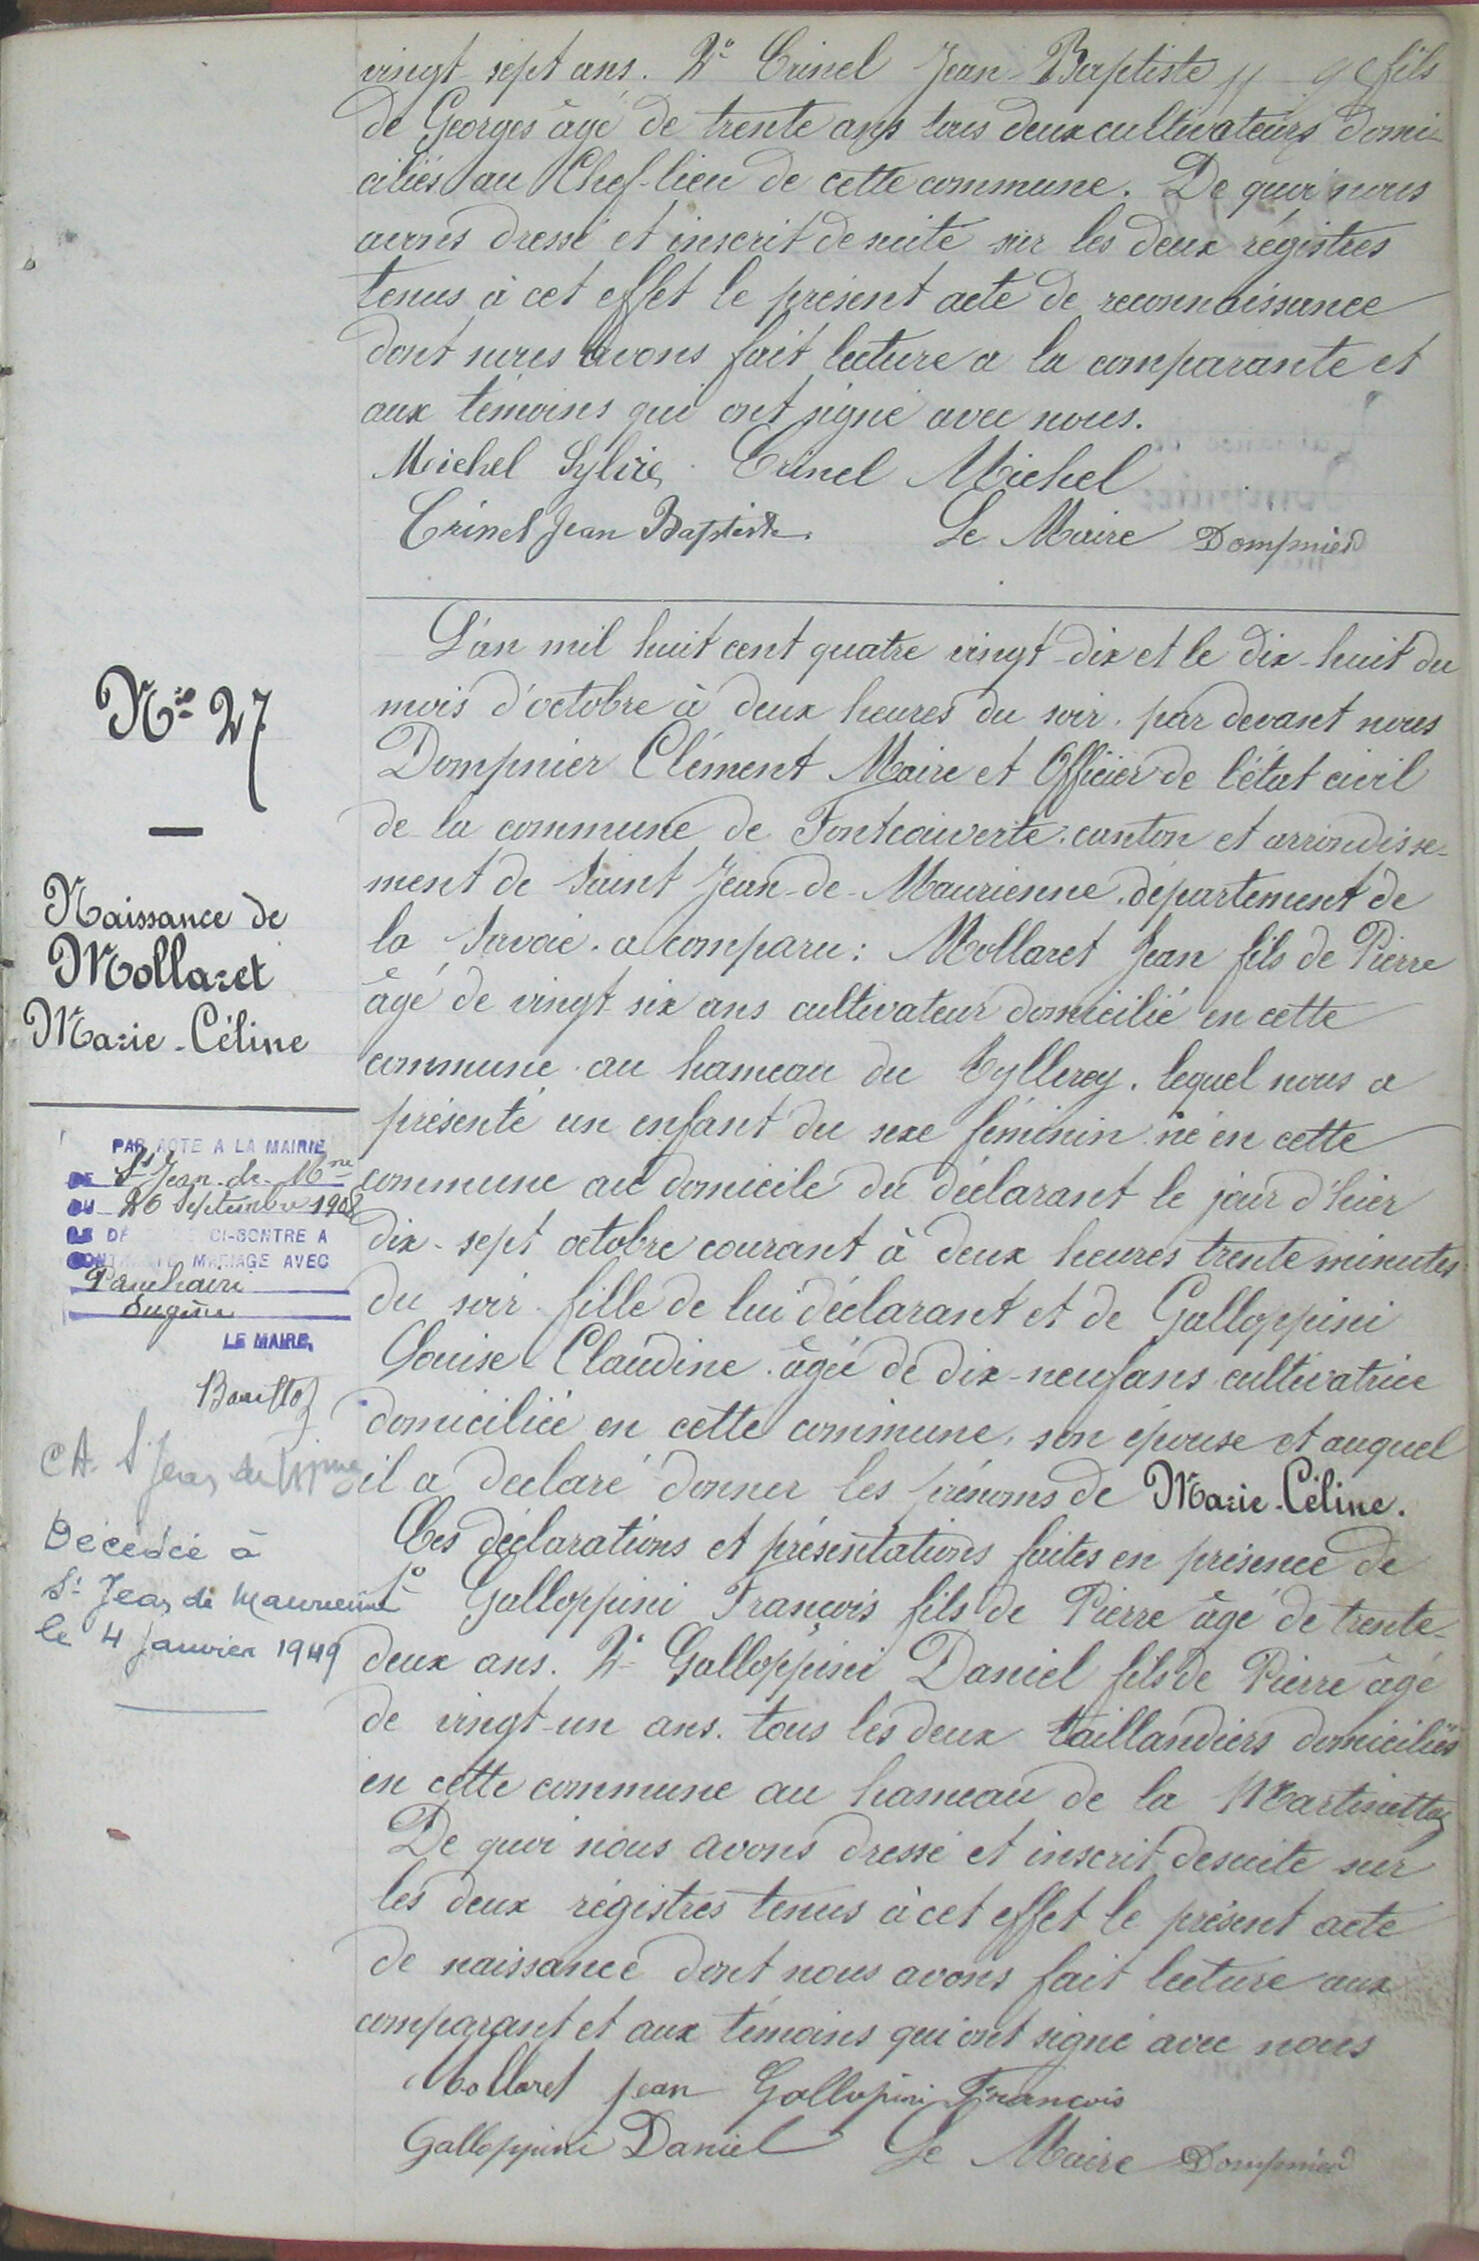 vingt sept ans. 2° Crinel Jean-Baptiste fils
de Georges âgé de trente ans tous deux cultivateurs domi-
ciliés au Chef-lieu de cette commune. De quoi nous
avons dressé et inscrit de suite sur les deux régistres
tenus à cet effet le présent acte de reconnaissance
dont nous avons fait lecture a la comparante et
aux témoins qui ont signé avec nous.
Michel Sylvie Crinel Michel
Crinel Jean Baptiste. Le Maire Dompnier
N° 27
Naissance de
Mollaret
Marie-Céline
PAR ACTE A LA MAIRIE
DE St Jean-de-Mne
DU 26 Septembre 1908
CI-CONTRE A
MARIAGE AVEC
LE MAIRE,
Décédée à
St Jean de Maurienne
le 4 Janvier 1949
L'an mil huit cent quatre vingt-dix et le dix-huit du
mois d'octobre à deux heures du soir. par devant nous
Dompnier Clément Maire et Officier de l'état civil
de la commune de Fontcouverte. canton et arrondisse-
ment de Saint Jean-de-Maurienne. département de
la Savoie. a comparu: Mollaret Jean fils de Pierre
âgé de vingt-six ans cultivateur domicilié en cette
commune. au hameau du Eylleray. lequel nous a
présenté un enfant du sexe féminin né en cette
commune au domicile du déclarant le jour d'hier
dix-sept octobre courant à deux heures trente minutes
du soir. fille de lui déclarant et de Galloppini
Louise-Claudine. âgée de dix-neuf ans cultivatrice
domiciliée en cette commune, son épouse et auquel
il a declaré donner les prénoms de Marie-Céline.
Ces déclarations et présentations faites en présence de
1° Galloppini François fils de Pierre âgé de trente-
deux ans. 2° Galloppini Daniel fils de Pierre âgé
de vingt-un ans. tous les deux taillandiers domiciliés
en cette commune au hameau de la Martinettaz
De quoi nous avons dressé et inscrit desuite sur
les deux régistres tenus à cet effet le présent acte
de naissance dont nous avons fait lecture aux
comparant et aux témoins qui ont signé avec nous
Mollaret Jean Gallopini François
Galloppini Daniel Le Maire Dompnier